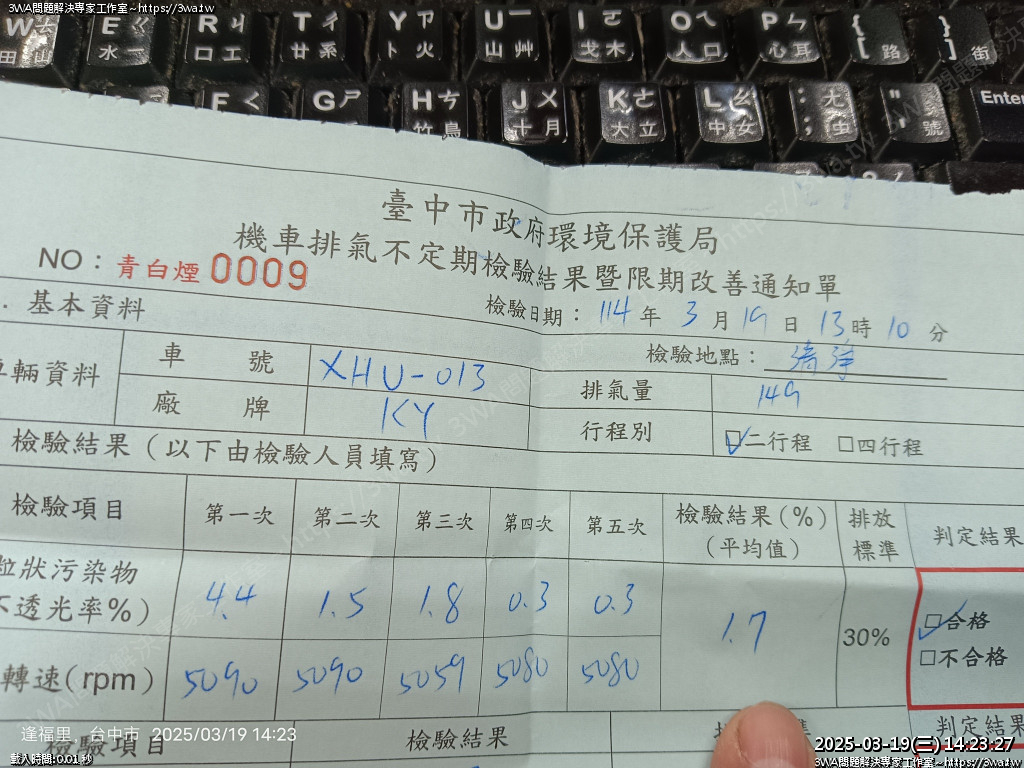 3WA問題解決專家工作室~https://3wa.tw
W E ㄍ R ㄐ T ㄔ Y ㄗ U ㄧ I ㄛ O ㄟ P ㄣ { }
田 水 口 工 廿 系 卜 火 山 艸 戈 木 人 口 心 耳 路 街
F ㄑ G ㄕ H ㄘ J ㄨ K ㄜ L ㄠ : ㄤ " Enter
竹 鳥 十 月 大 立 中 女 ; 虫 ' 號
臺中市政府環境保護局
機車排氣不定期檢驗結果暨限期改善通知單
NO：青白煙 0009
. 基本資料
檢驗日期： 114 年 3 月 19 日 13 時 10 分
檢驗地點：
車輛資料
車 號 XHU-013
排氣量 149
廠 牌 KY
行程別 ☑二行程 □四行程
檢驗結果（以下由檢驗人員填寫）
檢驗項目 第一次 第二次 第三次 第四次 第五次 檢驗結果（%）（平均值） 排放標準 判定結果
粒狀污染物
不透光率%） 4.4 1.5 1.8 0.3 0.3 1.7 30% ☑合格
□不合格
轉速(rpm) 5090 5090 5059 5080 5080
檢驗項目 檢驗結果 準 判定結果
逢福里, 台中市 2025/03/19 14:23
載入時間:0.01 秒
2025-03-19(三) 14:23:27
3WA問題解決專家工作室~https://3wa.tw